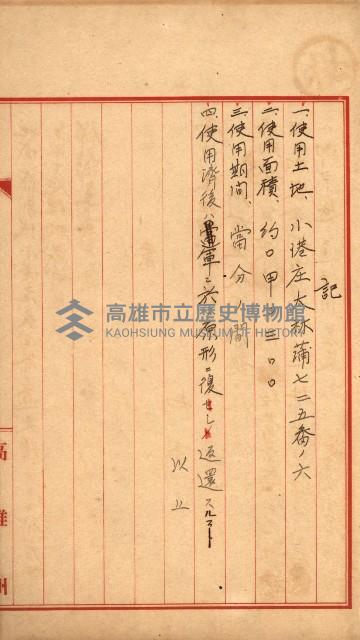 記
一、使用土地、小港庄大林蒲七二五番ノ六
二、使用面積、約〇甲三〇〇
三、使用期間、當分ノ間
四、使用濟後ハ當軍ニ於原形ニ復シ返還スルコト
以上
高雄州
高雄市立歷史博物館
KAOHSIUNG MUSEUM OF HISTORY